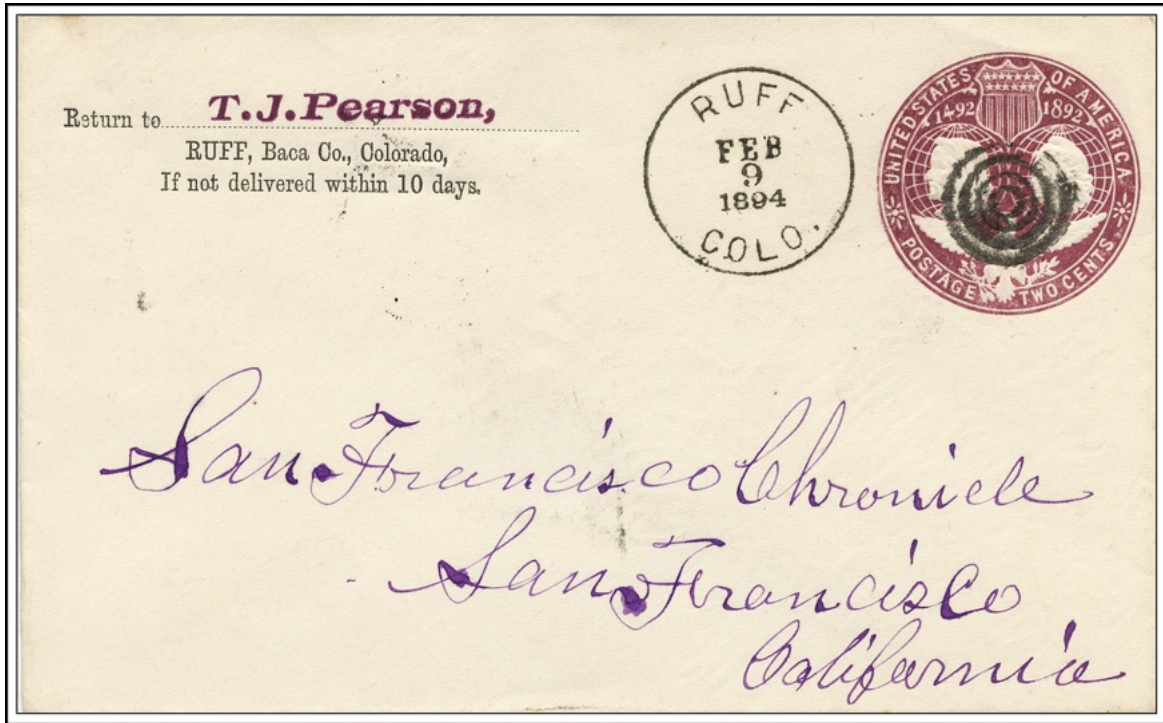 Return to T.J. Pearson,
RUFF, Baca Co., Colorado,
If not delivered within 10 days.
RUFF
FEB
9
1894
COLO.
UNITED STATES OF AMERICA
1492 1892
POSTAGE TWO CENTS
San Francisco Chronicle
San Francisco
California